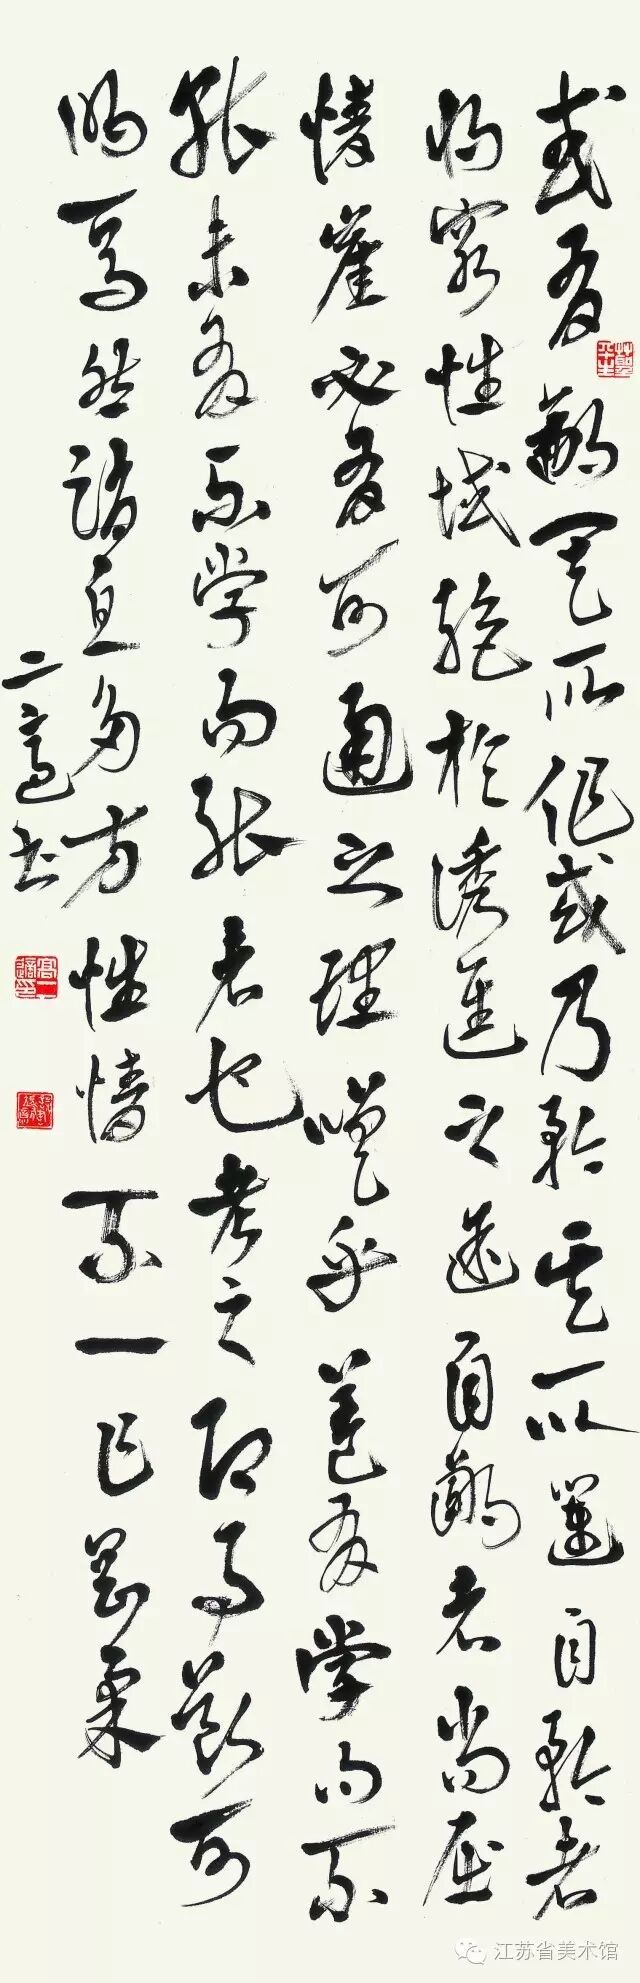 或有鄙其所作或乃矜其所運自矜者
將窮性域絕於誘進之途自鄙者尚屈
情崖必有可通之理嗟乎蓋有學而不
能未有不學而能者也考之即事斷可
明焉然消息多方性情不一乍剛柔
二適書
江苏省美术馆